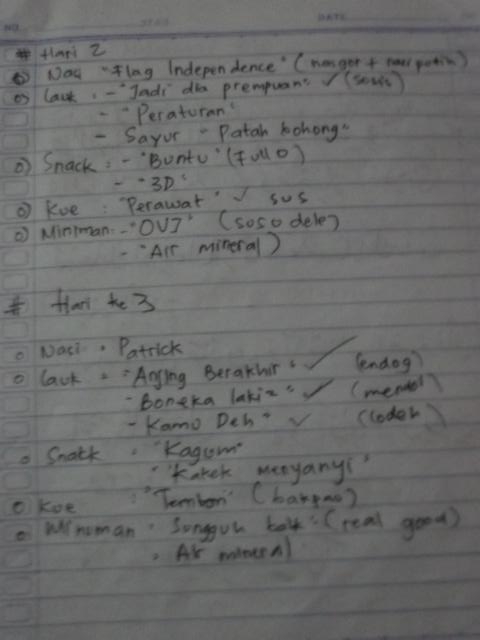 NO. DATE
# Hari 2
o) Nasi "Flag Independence" (nasgor + nasi putih)
o) Lauk : - "Jadi dia prempuan" ✓ (sosis)
- "Peraturan"
- Sayur "Patah bohong"
o) Snack : - "Buntu" (Full O)
- "3D"
o) Kue : "Perawat" ✓ sus
o) Minuman : - "OVJ" (soso dele)
- "Air mineral)
# Hari ke 3
o Nasi : Patrick
o Lauk : "Anjing Berakhir" ✓ (endog)
- Boneka laki2" ✓ (mendol)
- Kamu Deh" ✓ (lodeh)
o Snack : "Kagum"
"Kakek Menyanyi"
o Kue : "Tembon" (bakpao)
o Minuman : Sungguh baik" (real good)
, Air mineral